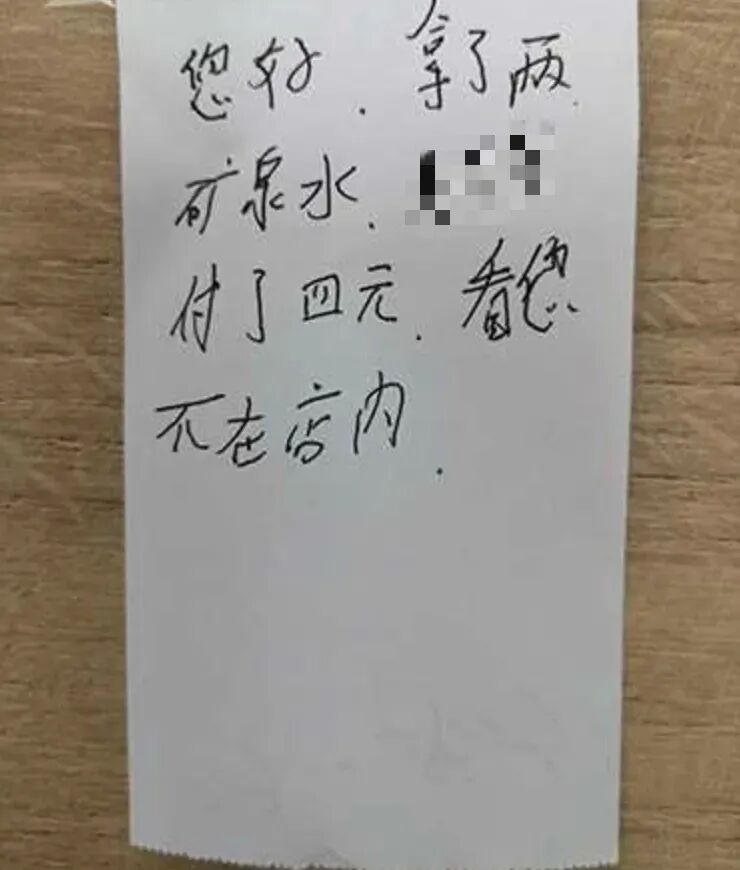 您好．拿了两
矿泉水．
付了四元．看您
不在店内．